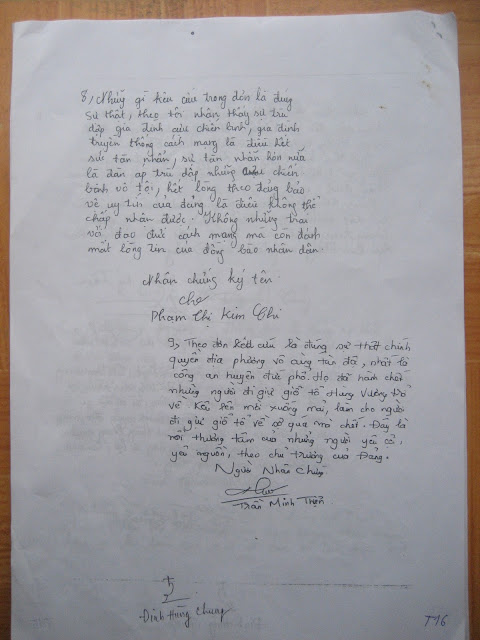 8, Những gì kêu cứu trong đơn là đúng
Sự thật, theo tôi nhận thấy sự trù
dập gia đình cựu chiến binh, gia đình
truyền thống cách mạng là điều hết
sức tàn nhẫn, sự tàn nhẫn hơn nữa
là đàn áp trù dập những cựu chiến
binh vô tội, hết lòng theo đảng bảo
vệ uy tín của đảng là điều không thể
chấp nhận được. Không những trái
với đạo đức cách mạng mà còn đánh
mất lòng tin của đồng bào nhân dân.
Nhân chứng ký tên
Phạm Thị Kim Chi
9, Theo đơn kêu cứu là đúng sự thật chính
quyền địa phương vô cùng tàn độc, nhất là
công an huyện đức phổ. Họ đã hành chết
những người đi giư giỗ tổ Hùng Vương
về kéo lên mới xuống mai, làm cho người
đi giư giỗ tổ về sợ quá mà chết. Đây là
nỗi thương tâm của những người yêu cỏ,
yêu nguồn, theo chủ trương của Đảng.
Người Nhân Chứng
Trần Minh Triện
Đinh Hùng Chung
T76